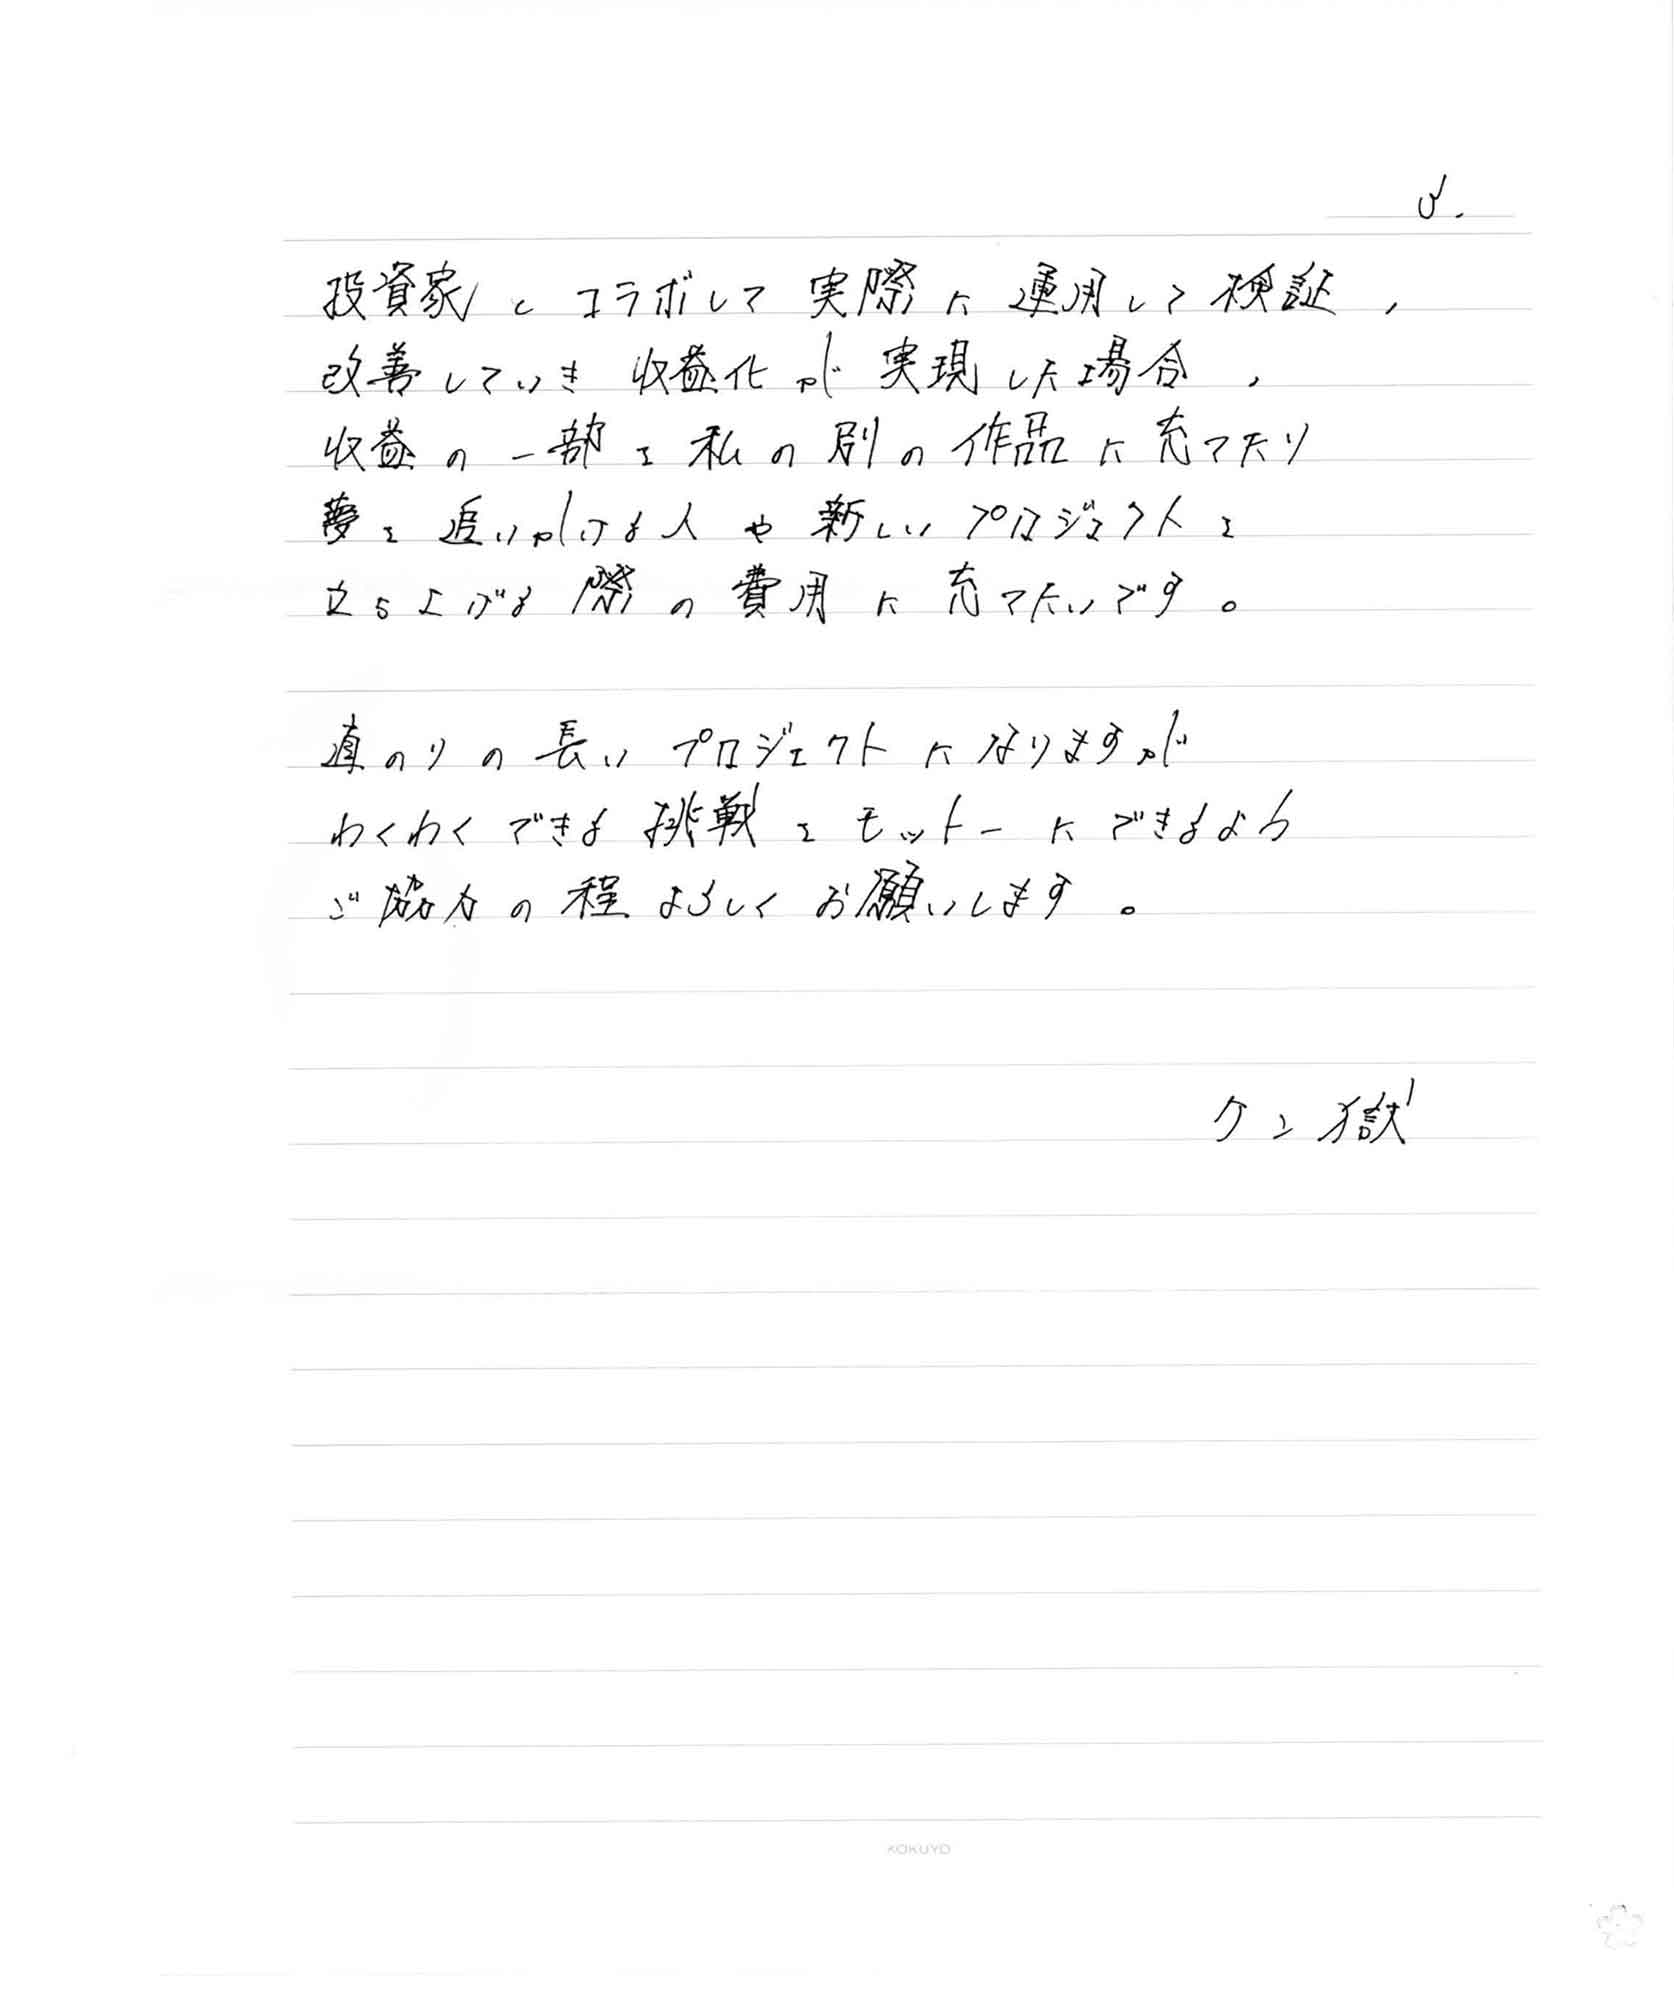 投資家とコラボして実際に運用して検証、
改善していき収益化が実現した場合、
収益の一部を私の別の作品に充てたり
夢を追いかける人や新しいプロジェクトを
立ち上げる際の費用に充てたいです。
直のりの長いプロジェクトになりますが
わくわくできる挑戦をモットーにできるよう
ご協力の程よろしくお願いします。
ケン獄
KOKUYO